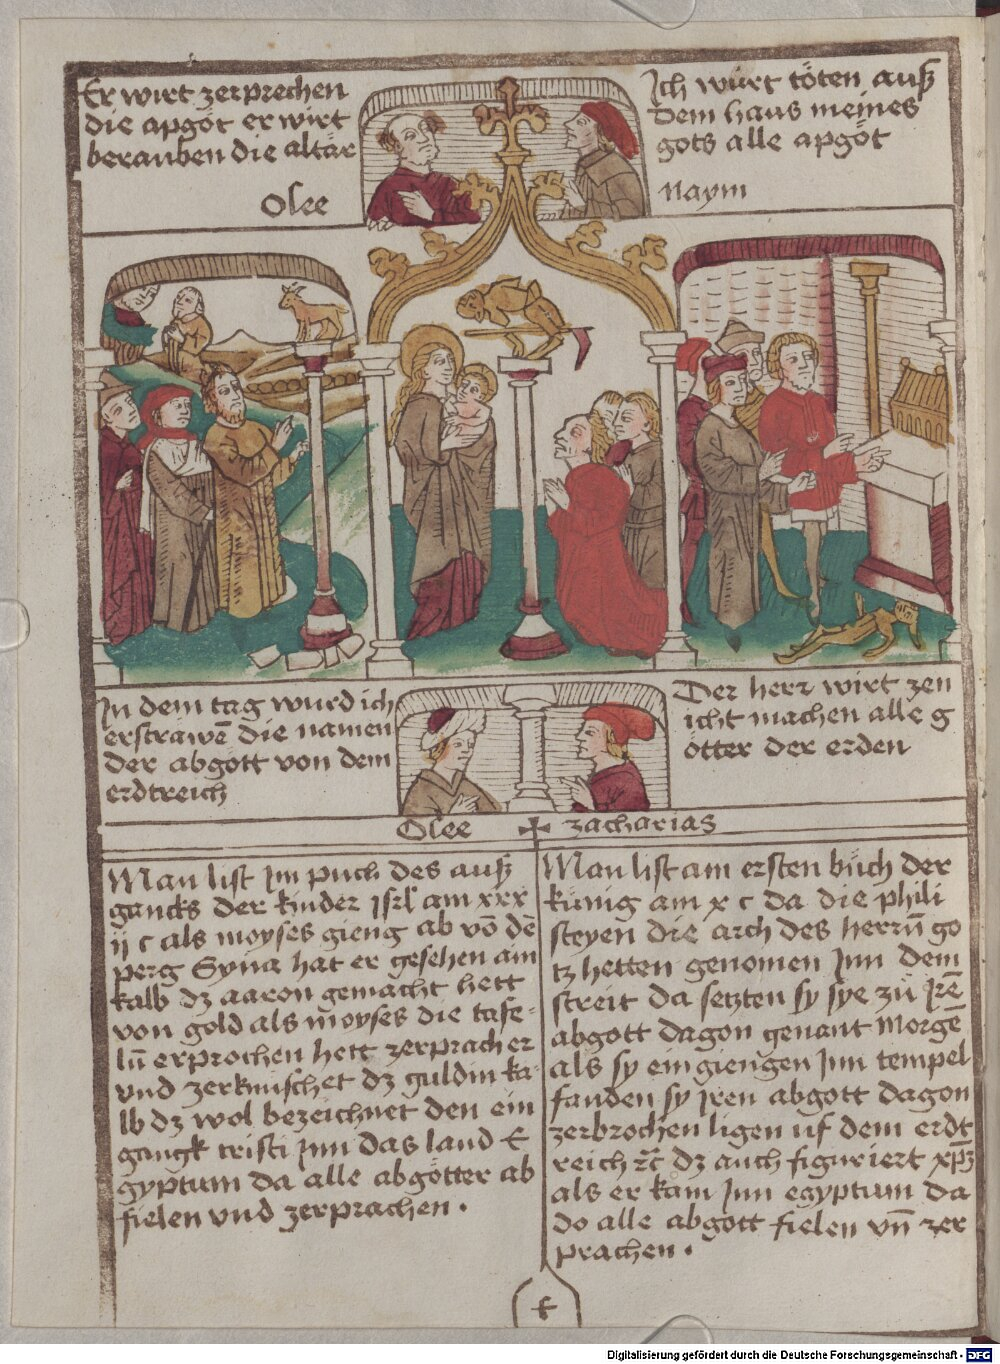 Er wirt zerprechen
die apgöt er wirt
berauben die altär
Osee
Ich würt töten auß
dem haus meines
gots alle apgöt
Naym
In dem tag wurd ich
erstrawē die namen
der abgött von dem
erdtreich
Der herr wirt zen
icht machen alle g
ötter der erden
Osee ✠ zacharias
Man list Im puch des auß
gancks der kinder isrl am xxx
ij c als moyses gieng ab vō dē
perg Syna hat er gesehen am
kalb dz aaron gemacht hett
von gold als moyses die tafe-
ln̄ erprochen hett zerprach er
vnd zerknischet dz guldin ka-
lb dz wol bezeichnet den ein
gangk cristi Inn das land E
gyptum da alle abgötter ab
fielen vnd zerprachen .
Man list am ersten büch der
künig am x c da die phili
steyen die arch des herrn̄ go
tz hetten genomen Inn dem
streit da setzten sy sye zů Irē
abgott dagon genant Morgē
als sy eingiengen Inn tempel
fanden sy Iren abgott dagon
zerbrochen ligen uf dem erdt
reich ꝛc̄ dz auch figuriert xp̄z
als er kam Inn egyptum da
do alle abgött fielen vn̄ zer
prachen .
f
Digitalisierung gefördert durch die Deutsche Forschungsgemeinschaft - DFG